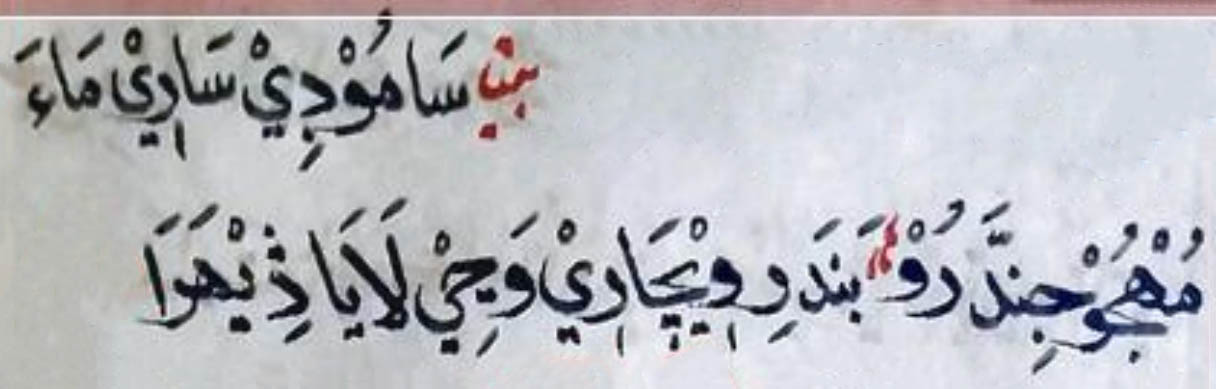 بيت سَا مُوْدِيْ سَارِيْ مَاءَ
مُهْجُوْ جِنَّدَ رُوْ بَنَدَرِ وِيْچَارِيْ وَڃِيْ لَايَا ذِيْهَرَا